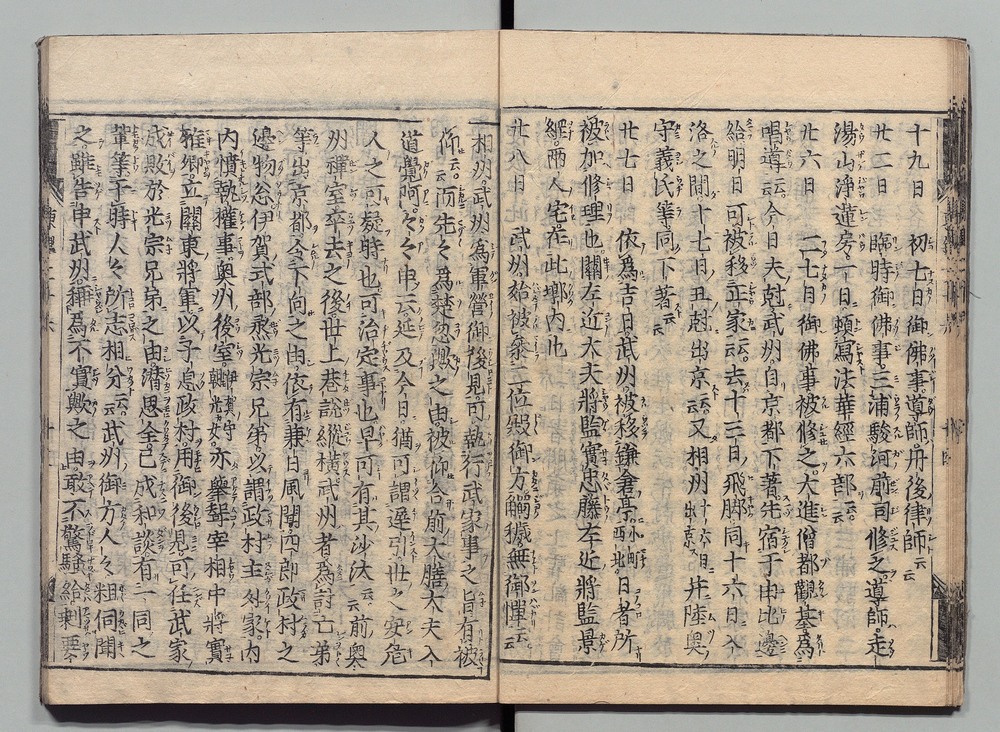 十九日 初七日御佛事導師丹後律師云云
廿二日 臨時御佛事三浦駿河前司修之導師走
湯山淨蓮房一日頓寫法華經六部云云
廿六日 二七日御佛事被修之大進僧都觀基爲
唱導云云今日夫尅武州自京都下著先宿于由比邊
給明日可被移正家云云去十三日飛脚同十六日入
洛之間十七日丑尅出京云云又相州十六日出京并陸奥
守義氏等同下著云云
廿七日 依爲吉日武州被移鎌倉亭小町西北日者所
被加修理也關左近大夫將監實忠藤左近將監景
綱兩人宅在此墎内也
廿八日 武州始被參二位殿御方觸穢無御憚云云
相州武州爲軍營御後見可執行武家事之旨有被
仰云云而先々爲楚忽歟之由被仰合前大膳大夫入
道覺阿々々申云延及今日猶可謂遲引世之安危
人之可疑時也可治定事也早可有其沙汰云云前奥
州禪室卒去之後世上巷說縱横武州者爲討亡弟
等出京都令下向之由依有兼日風聞四郎政村之
邊物忩伊賀式部烝光宗兄弟以謂政村主外家内
内憤執權事奥州後室伊賀守朝光女亦擧聟宰相中將實
雅卿立關東將軍以子息政村用御後見可任武家
成敗於光宗兄弟之由潜思企已成和談有一同之
輩等于時人々所志相分云云武州御方人々粗伺聞
之雖告申武州稱爲不實歟之由敢不驚騷給剩要